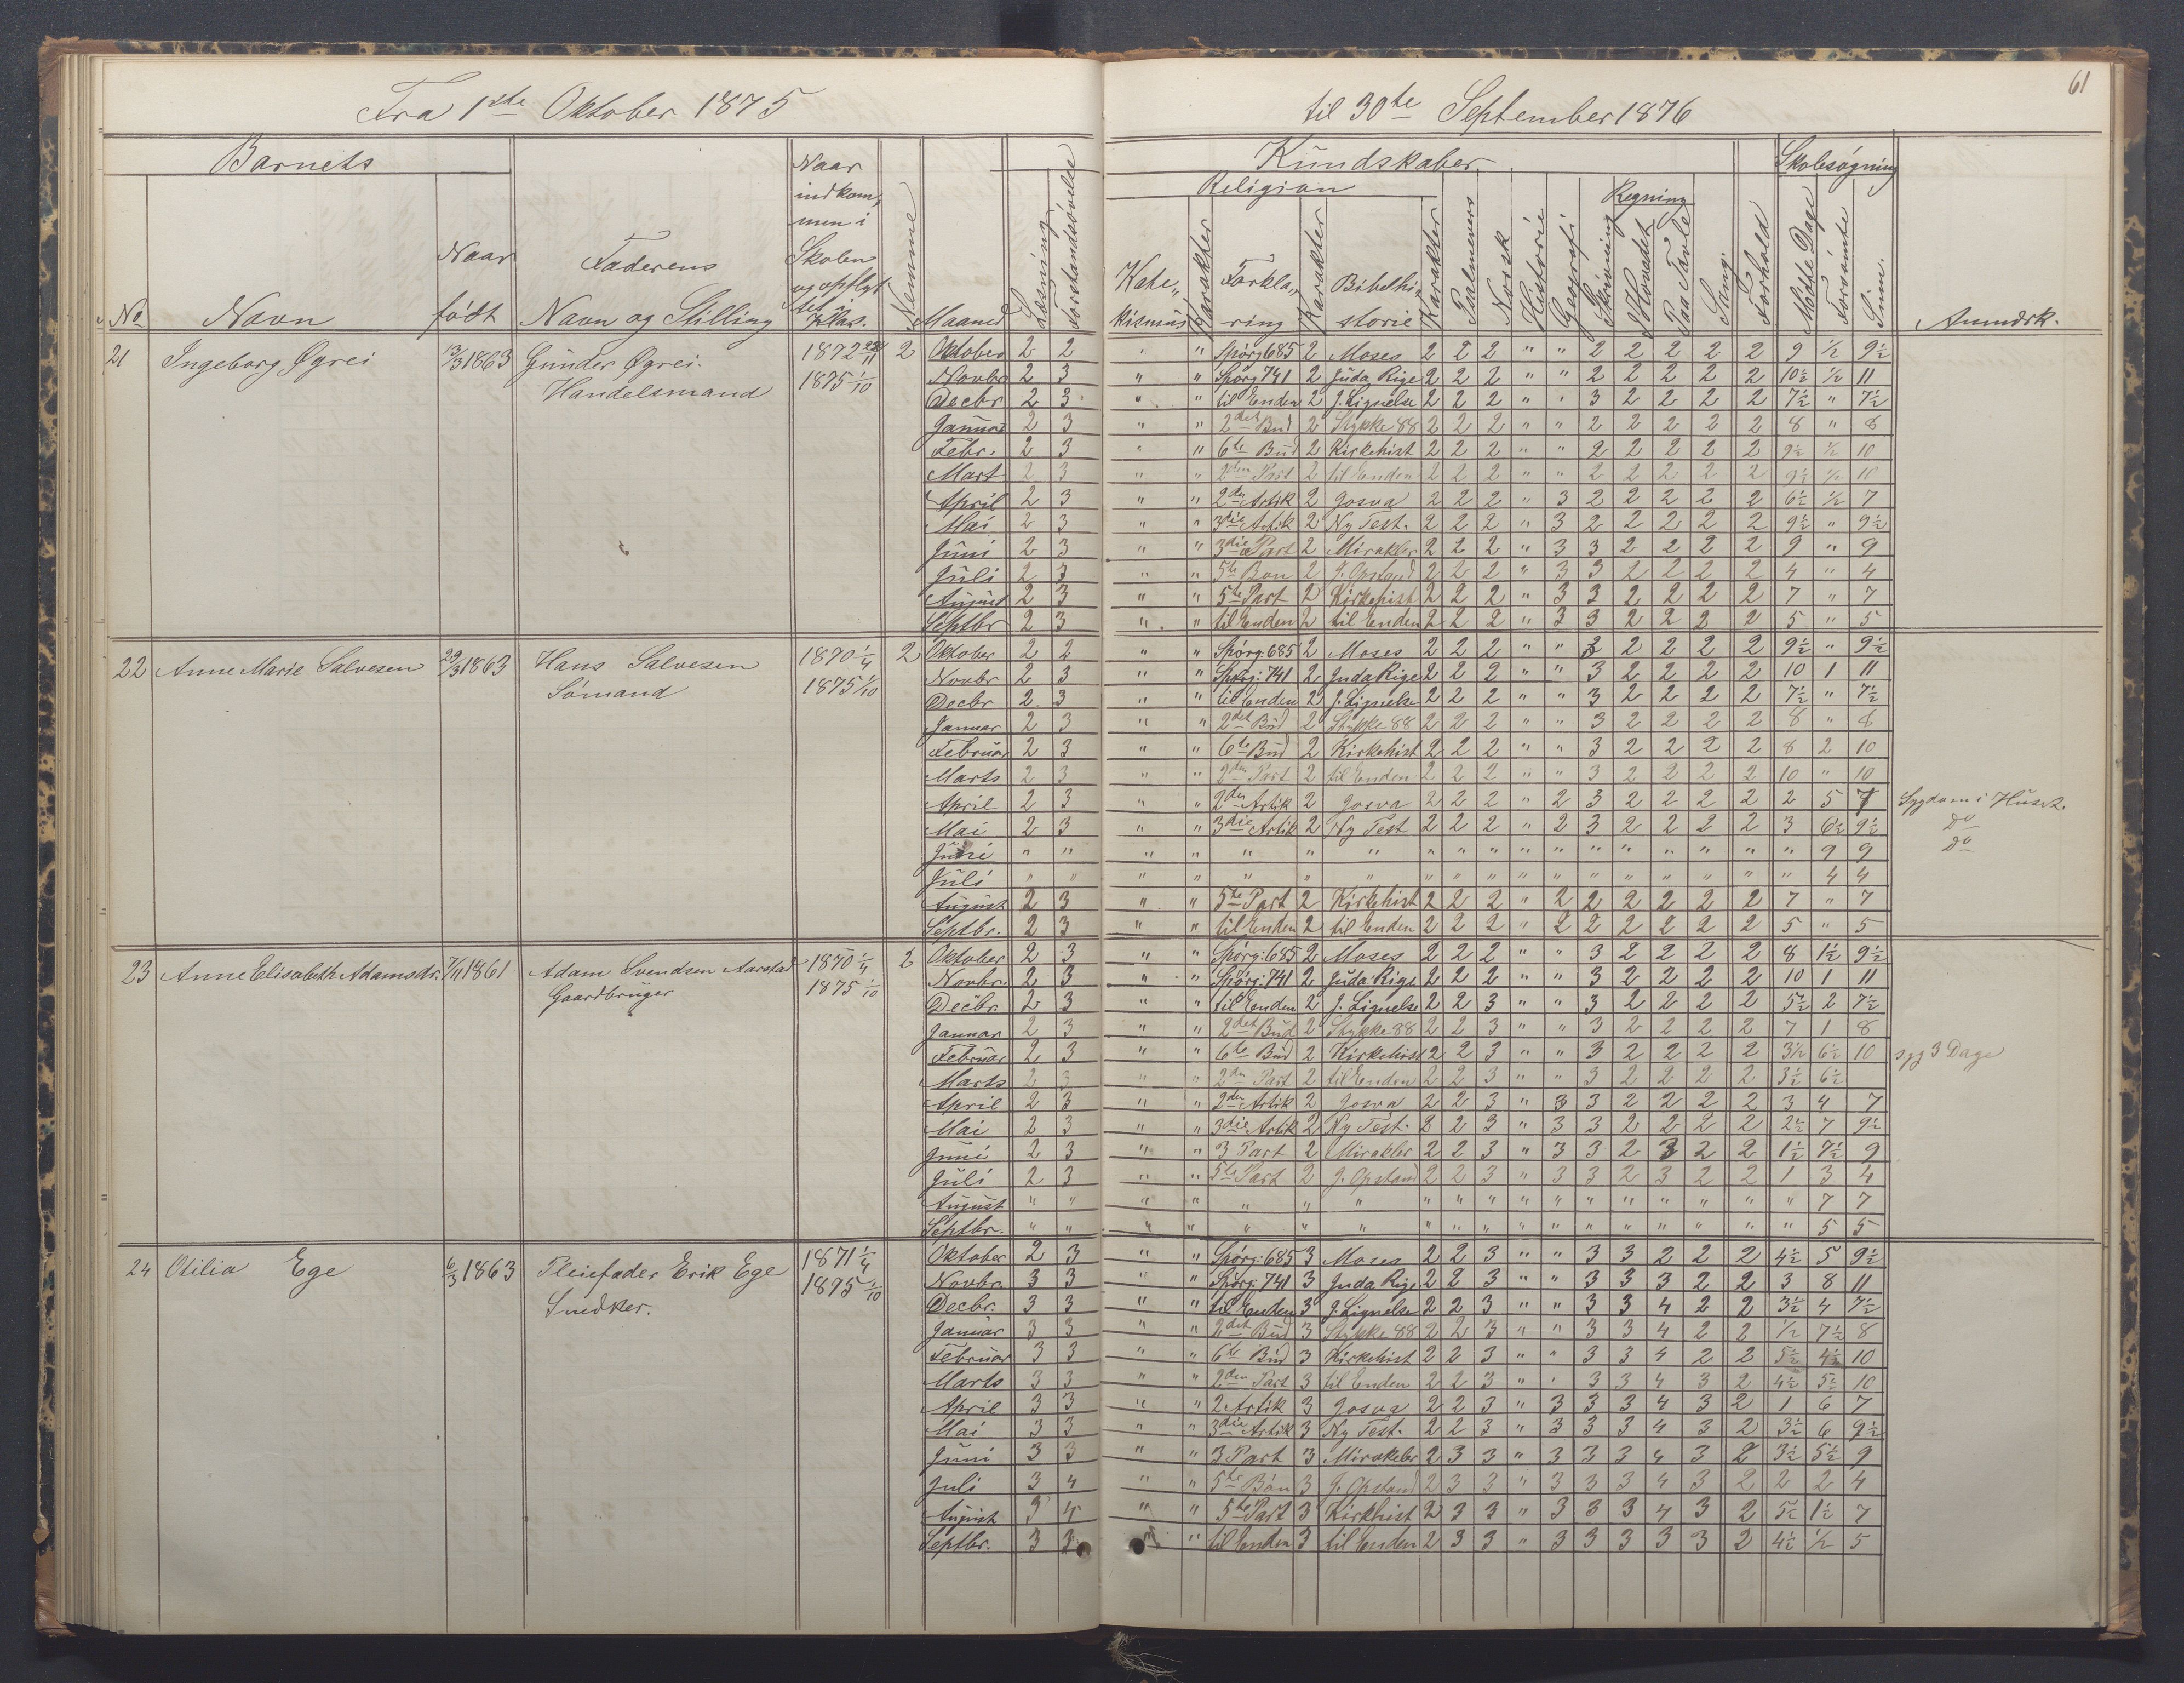 Fra 1ste Oktober 1875 til 30te September 1876
61
Barnets
Kundskaber.
Skolesøgning
Religion
Regning
No
Navn
Naar født
Faderens Navn og Stilling
Naar indkommen i Skolen og opflyttet i Klas.
Nemme
Maaned
Læsning
Forstandsøvelse
Katekismus
Karakter
Forklaring
Karakter
Bibelhistorie
Karakter
Psalmevers
Norsk
Historie
Geografi
Skrivning
I Hovedet
Paa Tavle
Sang
Forhold
Mødte Dage
Forsømte
Sum.
Anmærk.
21 Ingeborg Øgrei 13/3 1863 Gunder Øgrei. Handelsmand 1872 1875 1/10 2
Oktober 2 2 " " Spørg 685 2 Moses 2 2 2 " " 2 2 2 2 2 9 1/2 9 1/2
Novbr 2 3 " " Spørg 741 2 Juda Rige 2 2 2 " " 2 2 2 2 2 10 1/2 1/2 11
Decbr 2 3 " " til Enden 2 J. Lignelse 2 2 2 " " 3 2 2 2 2 7 1/2 " 7 1/2
Januar 2 3 " " 2det Bud 2 Stykke 88 2 2 2 " " 2 2 2 2 2 8 " 8
Febr. 2 3 " " 6te Bud 2 Kirkehist 2 2 2 " " 2 2 2 2 2 9 1/2 1/2 10
Mart 2 3 " " 2den Part 2 til Enden 2 2 2 " " 2 2 2 2 2 9 1/2 1/2 10
April 2 3 " " 2den Artik 2 Josva 2 2 2 " 3 2 2 2 2 2 6 1/2 1/2 7
Mai 2 3 " " 3die Artik 2 Ny Test. 2 2 2 " 3 2 2 2 2 2 9 1/2 " 9 1/2
Juni 2 3 " " 3die Part 2 Mirakler 2 2 2 " 3 3 2 2 2 2 9 " 9
Juli 2 3 " " 5te Bøn 2 J. Opstand 2 2 2 " 3 3 2 2 2 2 4 " 4
August 2 3 " " 5te Part 2 Kirkehist 2 2 2 " 3 3 2 2 2 2 7 " 7
Septbr 2 3 " " til Enden 2 til Enden 2 2 2 " 3 3 2 2 2 2 5 " 5
22 Anne Marie Salvesen 29/3 1863 Hans Salvesen Sømand 1870 1/4 1875 1/10 2
Oktober 2 2 " " Spørg. 685 2 Moses 2 2 2 " " 3 2 2 2 2 9 1/2 " 9 1/2
Novbr 2 3 " " Spørg: 741 2 Juda Rige 2 2 2 " " 3 2 2 2 2 10 1 11
Decbr 2 3 " " til Enden 2 J. Lignelse 2 2 2 " " 3 2 2 2 2 7 1/2 " 7 1/2
Januar 2 3 " " 2det Bud 2 Stykke 88 2 2 2 " " 3 2 2 2 2 8 " 8
Februar 2 3 " " 6te Bud 2 Kirkehist 2 2 2 " " 3 2 2 2 2 8 2 10
Marts 2 3 " " 2den Part 2 til Enden 2 2 2 " " 3 2 2 2 2 10 " 10
April 2 3 " " 2den Artik 2 Josva 2 2 2 " 2 3 2 2 2 2 2 5 7 Sygdom i Huset.
Mai 2 3 " " 3die Artik 2 Ny Test 2 2 2 " 2 3 2 2 2 2 3 6 1/2 9 1/2 Do
Juni " " " " " " " " " " " " " " " " " " " 9 9 Do
Juli " " " " " " " " " " " " " " " " " " " 4 4
August 2 3 " " 5te Part 2 Kirkehist 2 2 2 " 2 2 2 2 2 2 7 " 7
Septbr. 2 3 " " til Enden 2 til Enden 2 2 2 " 2 2 2 2 2 2 5 " 5
23 Anne Elisabeth Adamsdtr. 7/11 1861 Adam Svendsen Aarstad Gaardbruger 1870 1/4 1875 1/10 2
Oktober 2 3 " " Spørg: 685 2 Moses 2 2 2 " " 3 2 2 2 2 8 1 1/2 9 1/2
Novbr. 2 3 " " Spørg: 741 2 Juda Rige 2 2 2 " " 3 2 2 2 2 10 1 11
Decbr. 2 3 " " til Enden 2 J. Lignelse 2 2 3 " " 3 2 2 2 2 5 1/2 2 7 1/2
Januar 2 3 " " 2det Bud 2 Stykke 88 2 2 3 " " 3 2 2 2 2 7 1 8
Februar 2 3 " " 6te Bud 2 Kirkehist 2 2 3 " " 3 2 2 2 2 3 1/2 6 1/2 10 syg 3 Dage
Marts 2 3 " " 2den Part 2 til Enden 2 2 3 " " 3 2 2 2 2 3 1/2 6 1/2
April 2 3 " " 2den Artik 2 Josva 2 2 3 " 3 3 2 2 2 2 3 4 7
Mai 2 3 " " 3die Artik 2 Ny Test. 2 2 3 " 3 3 2 2 2 2 2 1/2 7 9 1/2
Juni 2 3 " " 3 Part 2 Mirakler 2 2 3 " 3 3 2 3 2 2 1 1/2 7 1/2 9
Juli 2 3 " " 5te Part 2 J. Opstand 2 2 3 " 3 3 2 3 2 2 1 3 4
August " " " " " " " " " " " " " " " " " " " 7 7
Septbr. " " " " " " " " " " " " " " " " " " " 5 5
24 Otilia Ege 6/3 1863 Pleiefader Erik Ege Snedker. 1871 1/4 1875 1/10
Oktober 2 3 " " Spørg: 685 3 Moses 2 2 3 " " 3 3 2 2 2 4 1/2 5 9 1/2
Novbr. 3 3 " " Spørg: 741 3 Juda Rige 2 2 3 " " 3 3 3 2 2 3 8 11
Decbr. 3 3 " " til Enden 3 J. Lignelse 2 2 3 " " 3 3 4 2 2 3 1/2 4 7 1/2
Januar 3 3 " " 2det Bud 3 Stykke 88 2 2 3 " " 3 3 4 2 2 1/2 7 1/2 8
Februar 3 3 " " 6te Bud 3 Kirkehist 2 2 3 " " 3 3 4 2 2 5 1/2 4 1/2 10
Marts 3 3 " " 2den Part 3 til Enden 2 2 3 " " 3 3 4 3 2 4 1/2 5 1/2 10
April 3 3 " " 2 Artik 3 Josva 2 2 3 " 3 3 3 4 3 2 1 6 7
Mai 3 3 " " 3die Artik 3 Ny Test. 2 2 3 " 3 3 3 4 3 2 3 1/2 6 9 1/2
Juni 3 3 " " 3 Part 3 Mirakeler 2 3 3 " 3 3 3 4 3 2 3 1/2 5 1/2 9
Juli 3 4 " " 5te Bøn 3 J. Opstand 2 3 3 " 3 3 3 4 3 2 2 2 4
August 3 4 " " 5te Part 3 Kirkhist 2 3 3 " 3 3 3 4 3 2 5 1/2 1 1/2 7
Septbr. 3 3 " " til Enden 3 til Enden 2 3 3 " 3 3 3 3 3 2 4 1/2 1/2 5